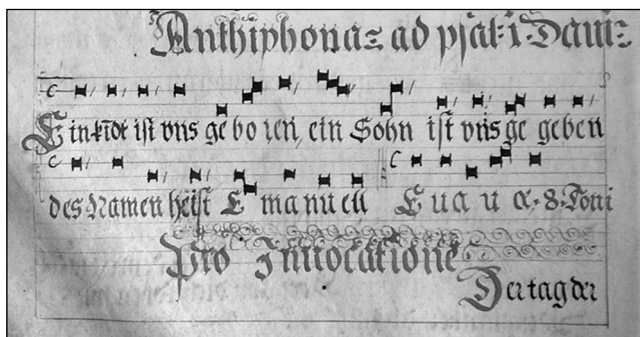 Anthiphona ad psal: i. Davi:
Ein kindt ist vns ge bo ren, ein Sohn ist vns ge geben
des Namen heist E ma nu ell E u a u æ. 8. Toni
Pro Innocatione
Der tag der